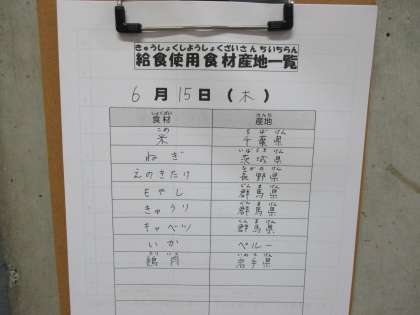 きゅうしょくしようしょくざいさんちいちらん
給食使用食材産地一覧
6月15日(木)
しょくざい さんち
食材 産地
こめ ちばけん
米 千葉県
いばらきけん
ねぎ 茨城県
ながのけん
えのきたけ 長野県
ぐんまけん
もやし 群馬県
ぐんまけん
きゅうり 群馬県
ぐんまけん
キャベツ 群馬県
いか ペルー
とりにく いわてけん
鶏肉 岩手県